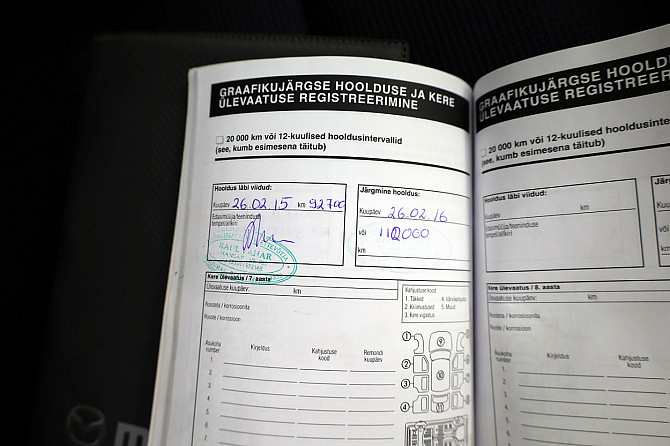 GRAAFIKUJÄRGSE HOOLDUSE JA KERE
ÜLEVAATUSE REGISTREERIMINE
20 000 km või 12-kuulised hooldusintervallid
(see, kumb esimesena täitub)
Hooldus läbi viidud:
Kuupäev 26.02.15 km 92700
Edasimüüja/teeninduse
tempel/allkiri
Järgmine hooldus:
Kuupäev 26.02.16
või 112000
km
Kere ülevaatus / 7. aasta
Ülevaatuse kuupäev: km
Roosteta / korrosioonita
Rooste / korrosioon
Kahjustuse kood:
1. Täkked
2. Kriimustused 5. Muud
3. Kere vigastus
Asukoha number Kirjeldus Kahjustuse kood Remondi kuupäev
1.
2.
3.
4.
5.
6.
7.
1
2
3
4
9
10
11
GRAAFIKUJÄRGSE HOOLD
ÜLEVAATUSE REGISTREE
20 000 km või 12-kuulised hooldusinte
(see, kumb esimesena täitub)
Hooldus läbi viidud:
Kuupäev km
Edasimüüja/teeninduse
tempel/allkiri
Kere ülevaatus / 8. aasta
Ülevaatuse kuupäev: km
Roosteta / korrosioonita
Rooste / korrosioon
Asukoha number Kirjeldus Kahjustuse kood
1.
2.
3.
4.
5.
6.